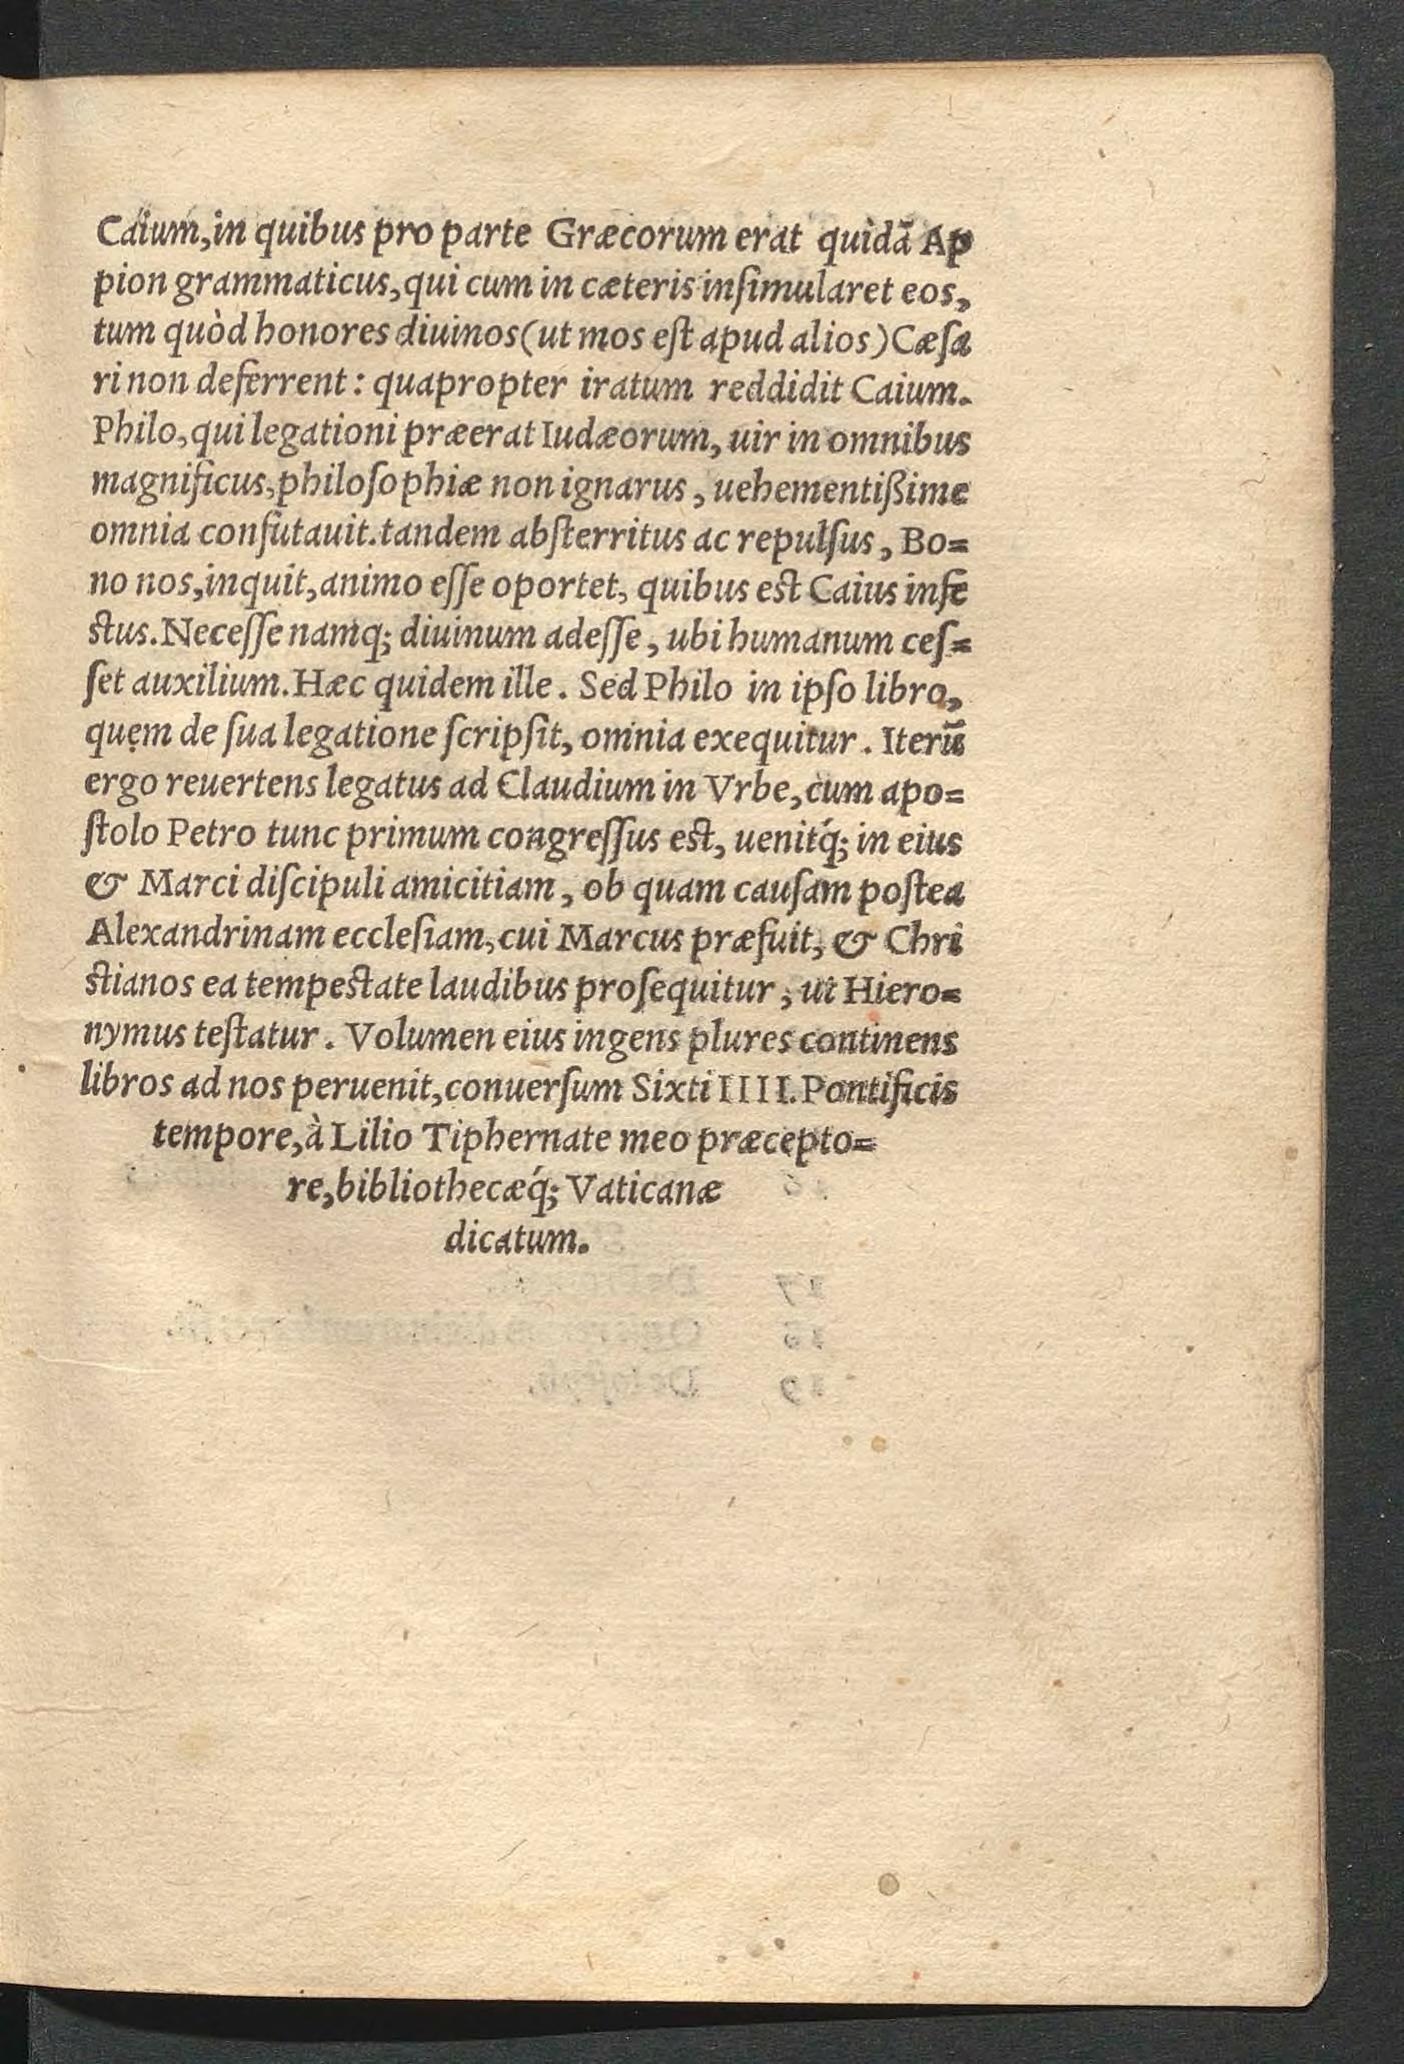 Caium, in quibus pro parte Græcorum erat quidã Ap
pion grammaticus, qui cum in cæteris insimularet eos,
tum quòd honores diuinos (ut mos est apud alios) Cæsa
ri non deferrent: quapropter iratum reddidit Caium.
Philo, qui legationi præerat Iudæorum, uir in omnibus
magnificus, philosophiæ non ignarus, uehementißime
omnia confutauit. tandem absterritus ac repulsus, Bo=
no nos, inquit, animo esse oportet, quibus est Caius infe
stus. Necesse namq; diuinum adesse, ubi humanum ces=
set auxilium. Hæc quidem ille. Sed Philo in ipso libro,
quem de sua legatione scripsit, omnia exequitur. Iterũ
ergo reuertens legatus ad Claudium in Vrbe, cum apo=
stolo Petro tunc primum congressus est, uenitq́; in eius
& Marci discipuli amicitiam, ob quam causam postea
Alexandrinam ecclesiam, cui Marcus præfuit, & Chri
stianos ea tempestate laudibus prosequitur, ut Hiero=
nymus testatur. Volumen eius ingens plures continens
libros ad nos peruenit, conuersum Sixti IIII. Pontificis
tempore, à Lilio Tiphernate meo præcepto=
re, bibliothecæq́; Vaticanæ
dicatum.